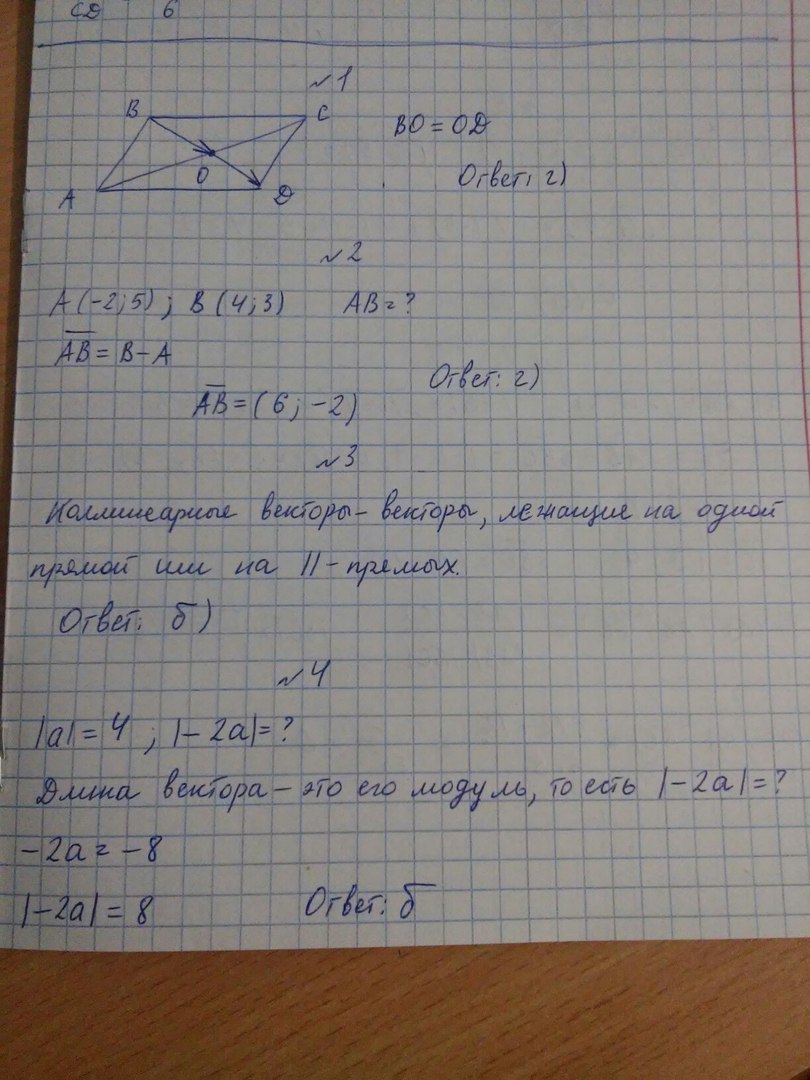 CD 6
~1
B C
BO = OD
O
A D
Ответ: г)
~2
A(-2;5); B(4;3) AB=?
AB = B-A
Ответ: г)
AB = (6; -2)
~3
Коллинеарные векторы - векторы, лежащие на одной
прямой или на || - прямых.
Ответ: б)
~4
|a| = 4 ; |-2a| = ?
Длина вектора - это его модуль, то есть |-2a| = ?
-2a = -8
|-2a| = 8 Ответ: б